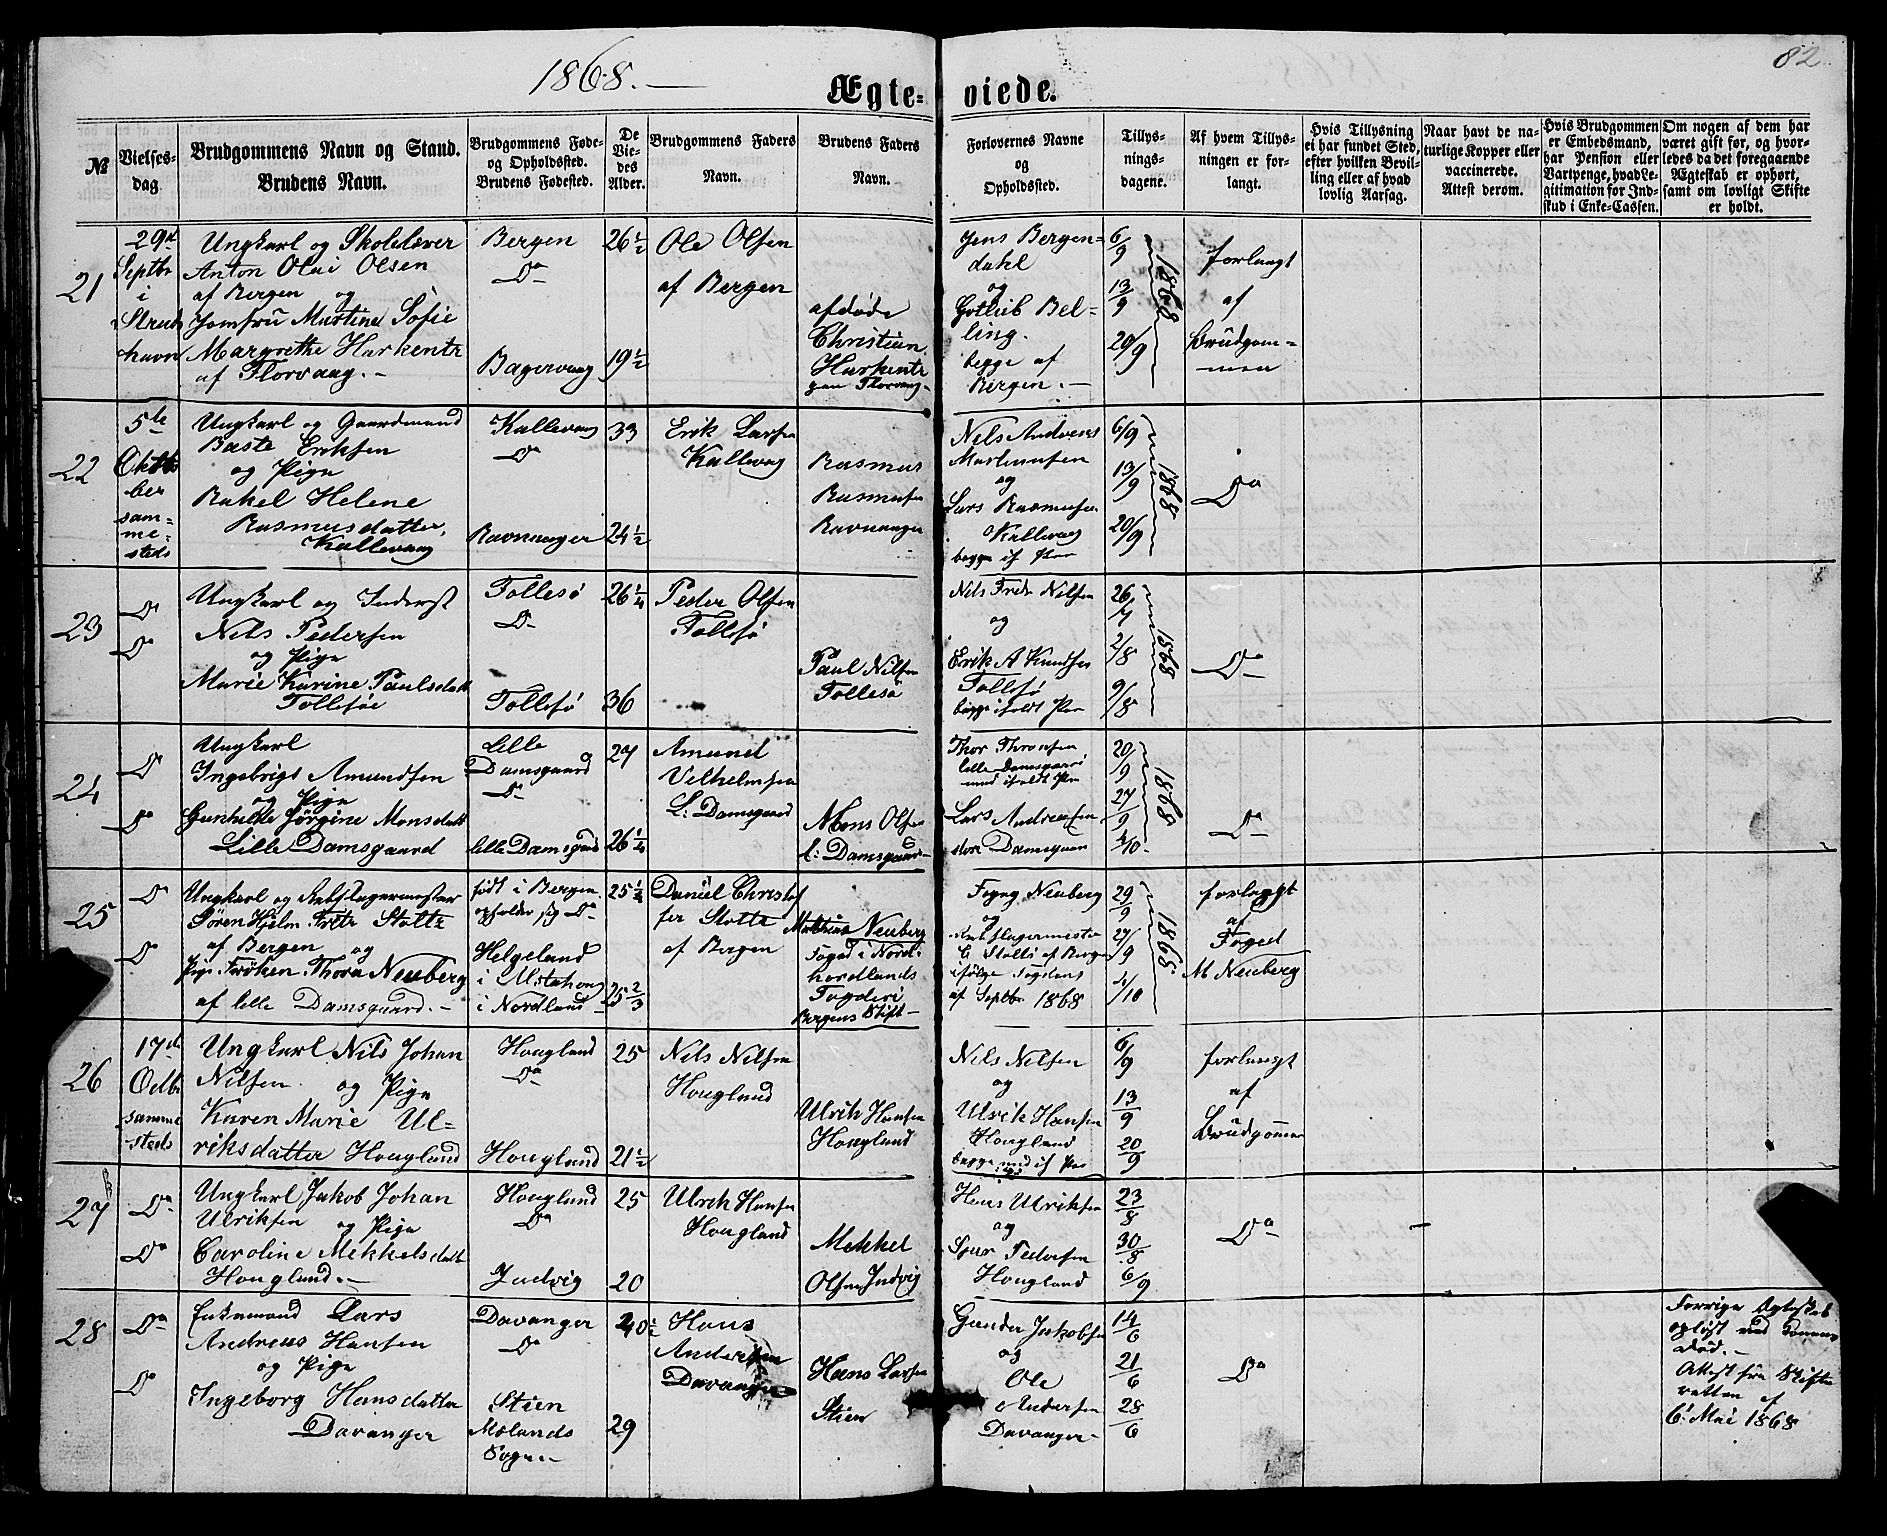 1868. —
82
Ægte=
viede.
№
Vielses-
dag.
Brudgommens Navn og Stand.
Brudens Navn.
Brudgommens Føde-
og Opholdssted.
Brudens Fødested.
De
Vie-
des
Alder.
Brudgommens Faders
Navn.
Brudens Faders
Navn.
Forlovernes Navne
og
Opholdssted.
Tillys-
nings-
dagene.
Af hvem Tillys-
ningen er for-
langt.
Hvis Tillysning
ei har fundet Sted,
efter hvilken Bevil-
ling eller af hvad
lovlig Aarsag.
Naar havt de na-
turlige Kopper eller
vaccinerede.
Attest derom.
Hvis Brudgommen
er Embedsmand,
har Pension eller
Vartpenge, hvad Le-
gitimation for Ind-
skud i Enke-Cassen.
Om nogen af dem har
været gift før, og hvor-
ledes da det foregaaende
Ægteskab er ophørt,
samt om lovligt Skifte
er holdt.
21
29d
Septbr
i
Strus
havn
Ungkarl og Skolelærer
Anton Olai Olsen
af Bergen og
Jomfru Martine Sofie
Margrethe Harkentz
af Florvaag. -
Bergen
Do
26 1/2
19 1/2
Ole Olsen
af Bergen
afdøde
Christian
Harkentz
Jens Bergen=
dahl
og
Gotlieb Bel-
ling.
begge af
Bergen. -
6/9
13/9
20/9
1868
forlangt
af
Brudgom=
men
22
5te
Oktb
ber
sam=
me=
steds
Ungkarl og Gaardmand
Baste Eriksen
og Pige
Rakel Helene
Rasmusdatter
Kallevaag
Kallevaag
Do
Ravnanger
33
24 1/2
Erik Larsen
Kallevaag
Rasmus
Rasmusen
Ravnanger
Nels Andreas
og
Lars Rasmusen
Kallevaag
6/9
13/9
20/9
1868
Do
23
Do
Do
Ungkarl og Inderst
Nils Pedersen
og Pige
Marie Karine Paulsdatt
Follesøe
Follesø
Do
Follesø
26 1/4
36
Peder Olsen
Follesø
Paul Nilsen
Follesø
Nils Fredr Nilsen
og
Erik A Knudsen
Follesø
26/7
2/8
9/8
1868
Do
24
Do
Do
Ungkarl
Ingebrigt Amundsen
og Pige
Gunhilde Jørgine Monsdatt
Lille Damsgaard
Lille
Damsgaard
Do
lille Damsgard
27
26 1/4
Amund
Velhelmsen
L: Damsgaard
Mons Olsen
l: Damsgaard
Thor Thronsen
lille Damsgaard
Lars Andreasen
store Damsgaar
20/9
27/9
4/10.
1868
Do
25
Do
Do
Ungkarl og Rebslagermester
Søren Hjelm Frete Stoltz
af Bergen og
Pige Frøken Thora Neuberg
af lille Damsgaard. -
født i Bergen
opholder sig Do
Helgeland
i Alstahoug
i Nordland -
25 1/2
25 2/3
Daniel Christof
fer Stoltz
af Bergen
Mathias Neuberg
Foged i Nord-
hordlands
Fogderi
Bergens Stift -
Neuberg
og
af Septbr 1868
29/9
27/9
4/10
1868
forlangt
af
Foged
M Neuberg
26
17de
Octbr
samme
steds
Ungkarl Nils Johan
Nilsen og Pige
Karen Marie Ul-
riksdatter Hougland
Hougland
Do
Hougland
25
21 1/2
Nils Nilsen
Hougland
Ulrik Hansen
Hougland
Nels Nelsen
og
Ulrik Hansen
Hougland
6/9
13/9
20/9
forlangt
af
Brudgomen
27
Do
Do
Ungkarl Jakob Johan
Ulriksen og Pige
Caroline Mekkelsdatt
Hougland. -
Hougland
Do
Indvig
25
20
Ulrik Hansen
Hougland
Mekkel
Olsen Indvig
Hans Ulriksen
og
Pedersen
Hougland
23/8
30/8
6/9
Do
28
Do
Do
Enkemand Lars
Andreas Hansen
og Pige
Ingeborg Hansdatter
Davanger
Davanger
Do
Stien
Mælands
Sogn. -
40 1/2
29
Hans
Andersen
Davanger
Hans Larsen
Stien
Gunder Jakobsen
og
Ole
Andersen
Davanger -
14/6
21/6
28/6
Do
Forrige Ægteskab
opløst ved Konens
Død. -
Attest fra Skifte
retten af
6 Mai 1868